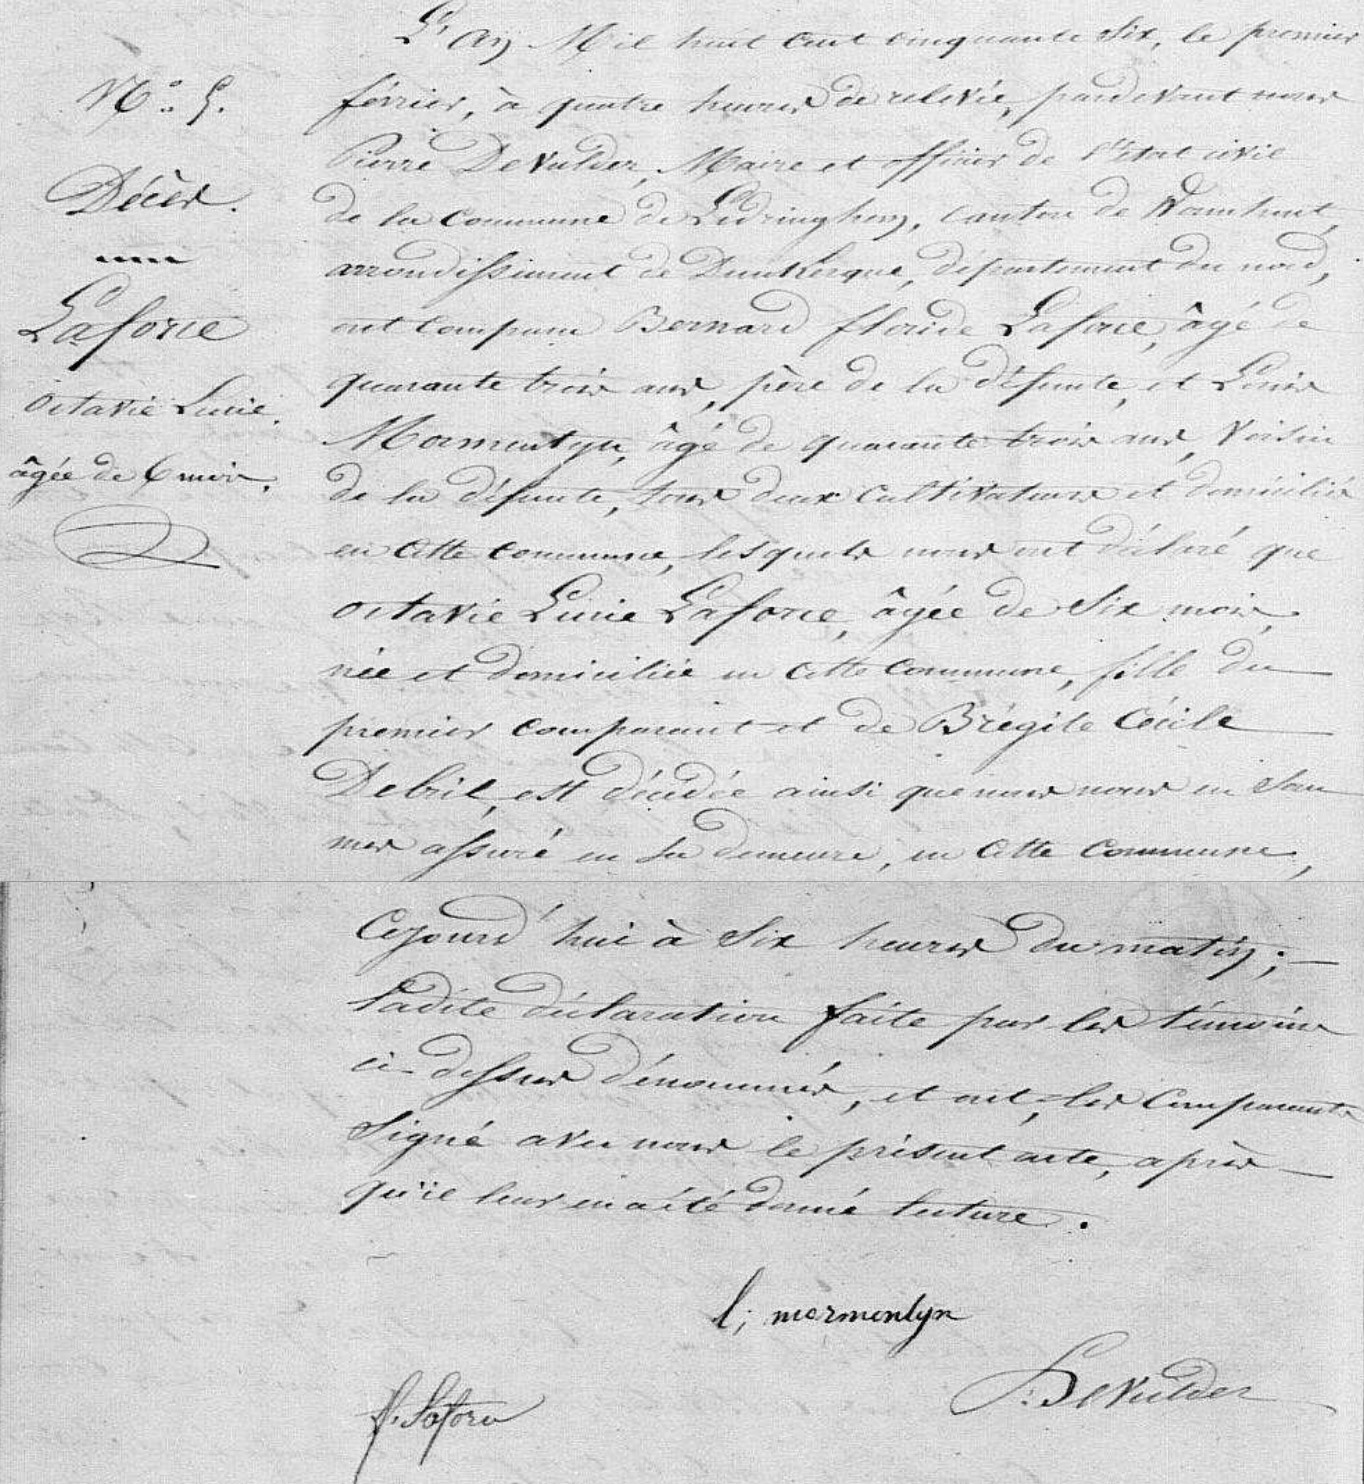 N.o 5.
Décès.
Laforce
Octavie Lucie.
âgée de 6 mois.
L'An Mil huit cent cinquante six, le premier
février, à quatre heures de relevée, pardevant nous
Pierre DeVulder, Maire et officier de l'état civil
de la Commune de Ledringhem, canton de Wormhout,
arrondissement de Dunkerque, département du nord,
ont comparu Bernard floride Laforce, âgé de
quarante trois ans, père de la défunte, et Louis
Mormentyn, âgé de quarante trois ans, Voisin
de la défunte, tous deux Cultivateurs et domiciliés
en cette commune, lesquels nous ont déclaré que
Octavie Lucie Laforce, âgée de Six mois,
née et domiciliée en cette commune, fille du
premier comparant et de Brégite Cécile
Debril, est décédée ainsi que nous nous en som
mes assuré en sa demeure, en cette commune,
Cejourd'hui à Six heures du matin;
Ladite déclaration faite par les témoins
ci-dessus dénommés, et ont, les Comparants
Signé avec nous le présent acte, après
qu'il leur en a été donné lecture.
l; mormentyn
f. Laforce
P. DeVulder